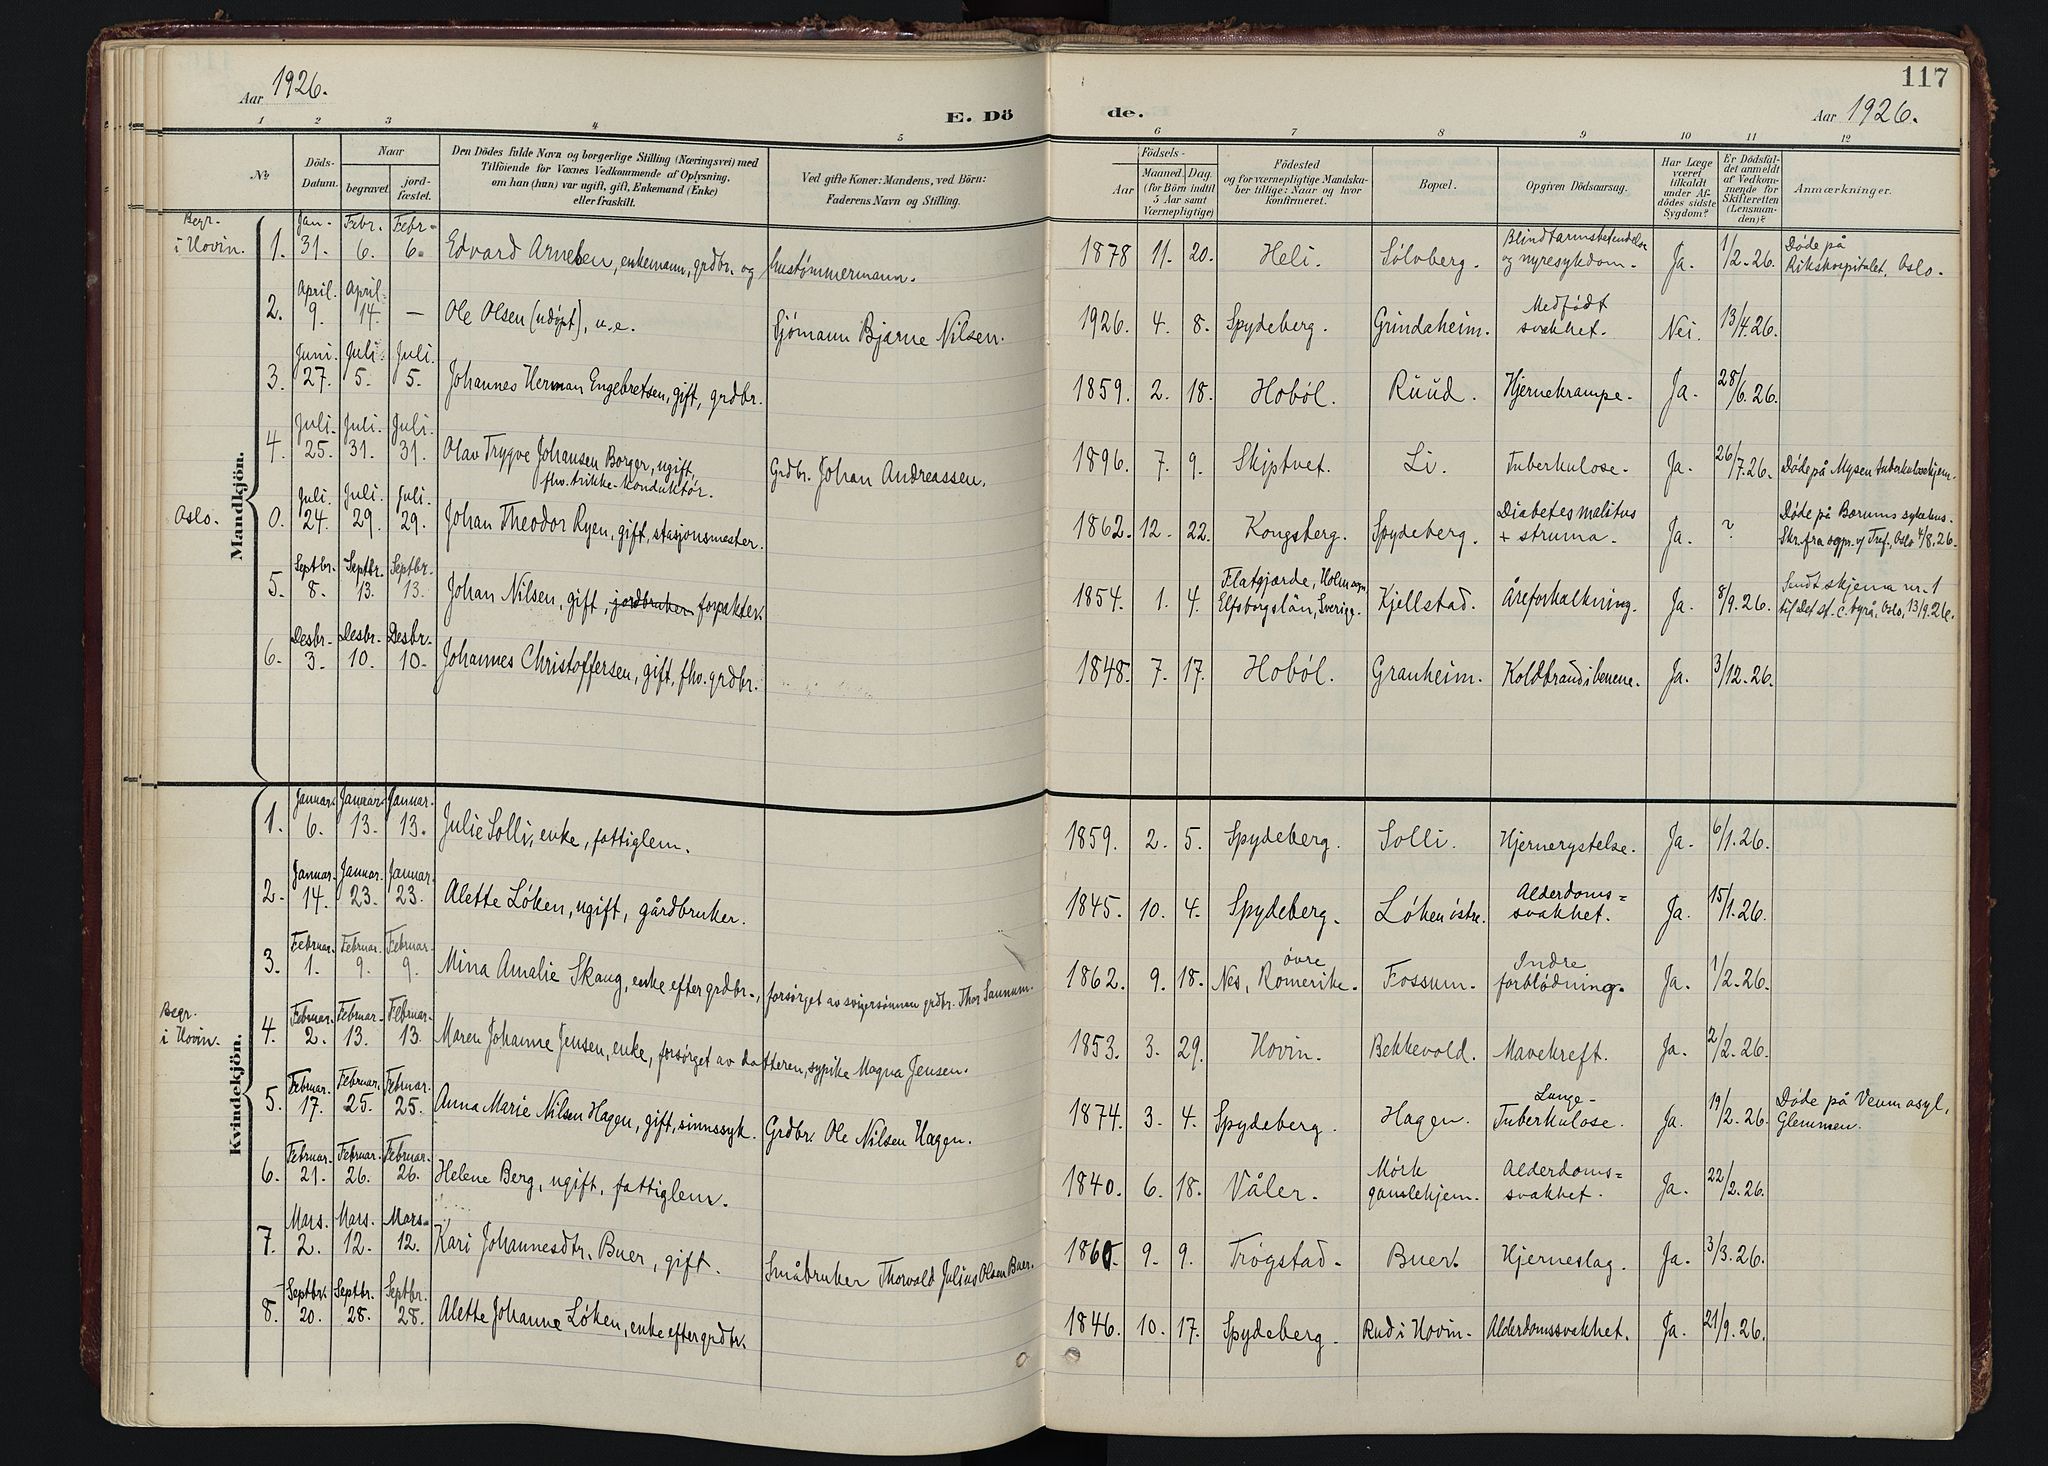 Aar 1926.
E. Döde.
117
Aar 1926.
1 2 3 4 5 6 7 8 9 10 11 12
No
Döds-Datum.
Naar
begravet.
jord-fæstet.
Den Dödes fulde Navn og borgerlige Stilling (Næringsvei) med
Tilföiende for Voxnes Vedkommende af Oplysning,
om han (hun) var ugift, gift, Enkemand (Enke)
eller fraskilt.
Ved gifte Koner: Mandens, ved Börn:
Faderens Navn og Stilling.
Födsels-
Aar
Maaned. Dag.
(for Börn indtil
5 Aar samt
Værnepligtige)
Födested
og for værnepligtige Mandska-
ber tillige: Naar og hvor
konfirmeret.
Bopæl.
Opgiven Dödsaarsag.
Har Læge
været
tilkaldt
under Af-
dödes sidste
Sygdom?
Er Dödsfal-
det anmeldt
af Vedkom-
mende for
Skifteretten
(Lensman-
den)?
Anmærkninger.
Mandkjön.
Begr. i Hovin. 1. Jan. 31. Febr. 6. Febr. 6. Edvard Arnesen, enkemann, grdbr. og hustømmermann. 1878 11. 20. Heli. Sølvberg. Blindtarmsbetendelse og nyresykdom. Ja. 1/2-26. Døde på Rikshospitalet, Oslo.
2. April. 9. April. 14. — Ole Olsen (udøpt), u.e. Sjømann Bjarne Nilsen. 1926. 4. 8. Spydeberg. Grindaheim. Medfødt svakhet. Nei. 13/4.26.
3. Juni. 27. Juli. 5. Juli. 5. Johannes Herman Engebretsen, gift, grdbr. 1859. 2. 18. Hobøl. Ruud. Hjernekrampe. Ja. 28/6.26.
4. Juli. 25. Juli. 31. Juli. 31. Olav Trygve Johansen Borger, ugift, fhv. trikke-konduktør. Grdbr. Johan Andreassen. 1896. 7. 9. Skiptvet. Li. Tuberkulose. Ja. 26/7.26. Døde på Mysen tuberkulosehjem.
Oslo. 0. Juli. 24. Juli. 29. Juli. 29. Johan Theodor Ryen, gift, stasjonsmester. 1862. 12. 22. Kongsberg. Spydeberg. Diabetes malitus + struma. Ja. ? Døde på Bærums sykehus. Skr. fra sogpr. v/ Tref., Oslo 4/8.26.
5. Septbr. 8. Septbr. 13. Septbr. 13. Johan Nilsen, gift, jordbruker forpakter. 1854. 1. 4. Flatgjærde, Holm sogn Elfsborgslän, Sverige. Kjellstad. Åreforkalkning. Ja. 8/9.26. Sendt skjema nr. 1 til det st. c. byrå, Oslo, 13/9.26.
6. Desbr. 3. Desbr. 10. Desbr. 10. Johannes Christoffersen, gift, fhv. grdbr. 1848. 7. 17. Hobøl. Granheim. Koldbrand i benene. Ja. 3/12.26.
Kvindekjön.
1. Januar. 6. Januar. 13. Januar. 13. Julie Solli, enke, fattiglem. 1859. 2. 5. Spydeberg. Solli. Hjernerystelse. Ja. 6/1.26.
2. Januar. 14. Januar. 23. Januar. 23. Alette Løken, ugift, gårdbruker. 1845. 10. 4. Spydeberg. Løken østre. Alderdoms-svakhet. Ja. 15/1.26.
3. Februar. 1. Februar. 9. Februar. 9. Mina Amalie Skaug, enke efter grdbr., forsørget av svigersønnen grdbr. Thor Saunum. 1862. 9. 18. Nes, øvre Romerike. Fossum. Indre forblødning. Ja. 1/2.26.
Begr. i Hovin. 4. Februar. 2. Februar. 13. Februar. 13. Maren Johanne Jensen, enke, forsørget av datteren, sypike Magna Jensen. 1853. 3. 29. Hovin. Bekkevold. Mavekreft. Ja. 2/2.26.
5. Februar. 17. Februar. 25. Februar. 25. Anna Marie Nilsen Hagen, gift, sinnssyk. Grdbr. Ole Nilsen Hagen. 1874. 3. 4. Spydeberg. Hagen. Lunge-Tuberkulose. Ja. 19/2.26. Døde på Veum asyl, Glemmen.
6. Februar. 21. Februar. 26. Februar. 26. Helene Berg, ugift, fattiglem. 1840. 6. 18. Våler. Mørk gamlehjem. Alderdoms-svakhet. Ja. 22/2.26.
7. Mars. 2. Mars. 12. Mars. 12. Kari Johannesdtr. Buer, gift. Småbruker Thorvald Julius Olsen Buer. 1860. 9. 9. Trøgstad. Buer. Hjerneslag. Ja. 3/3.26.
8. Septbr. 20. Septbr. 28. Septbr. 28. Alette Johanne Løken, enke efter grdbr. 1846. 10. 17. Spydeberg. Rud i Hovin. Alderdomssvakhet. Ja. 21/9.26.